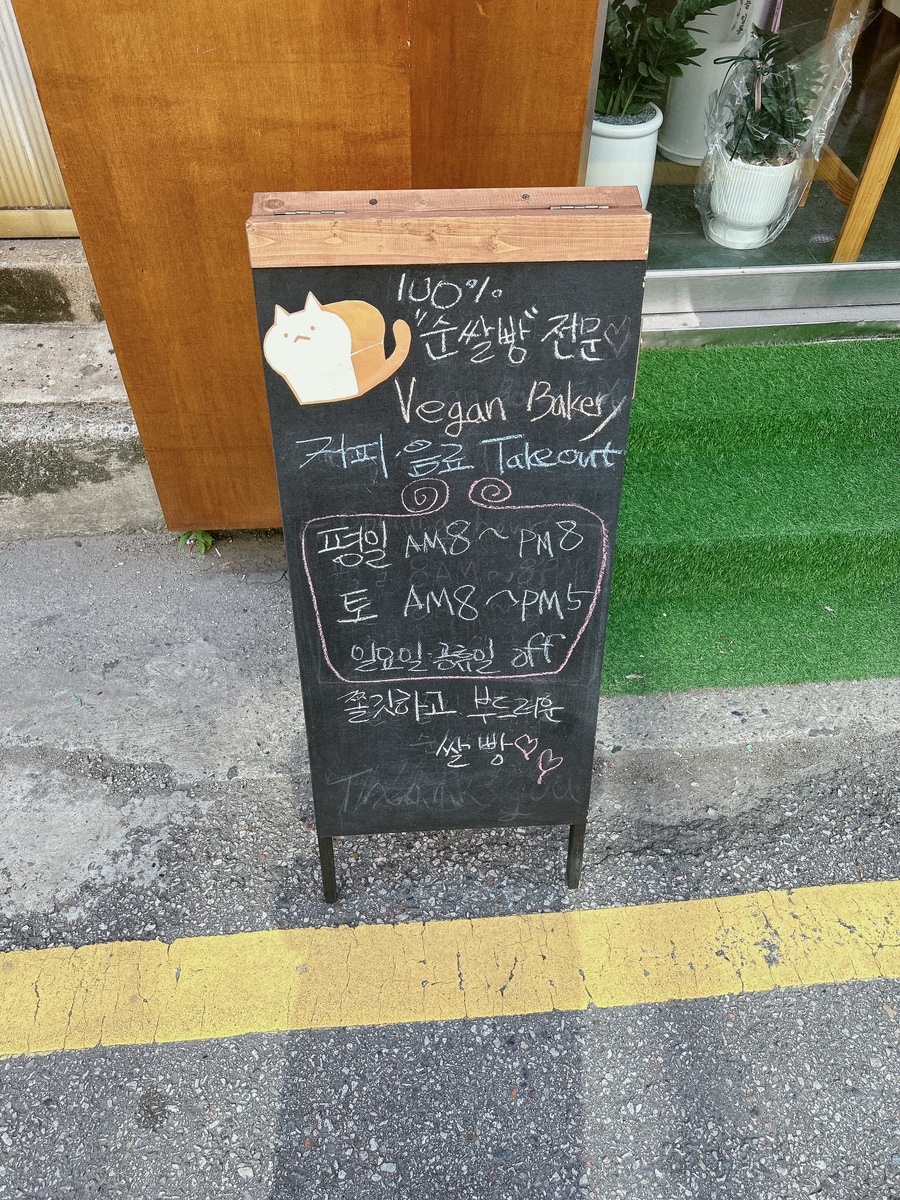 100%
"순쌀빵" 전문♡
Vegan Bakery
커피·음료 Takeout
평일 AM8~PM8
토 AM8~PM5
일요일·공휴일 off
쫄깃하고 부드러운
쌀빵♡♡
Thank you